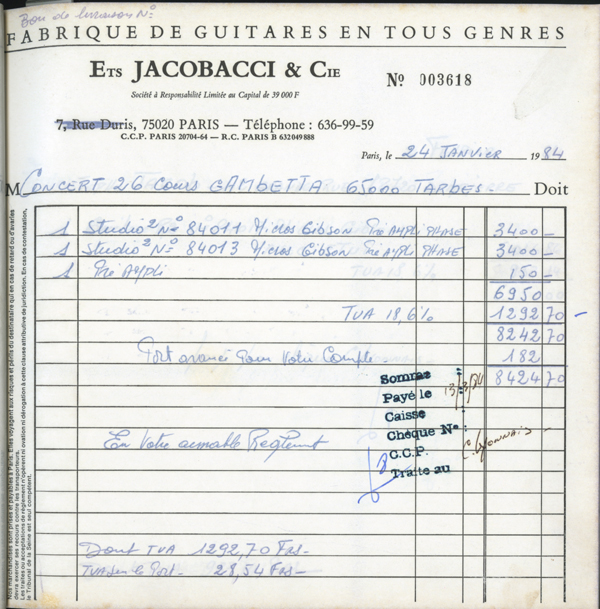 Bon de livraison Nº
FABRIQUE DE GUITARES EN TOUS GENRES
ETS JACOBACCI & CIE
Société à Responsabilité Limitée au Capital de 39 000 F
Nº 003618
7, Rue Duris, 75020 PARIS — Téléphone : 636-99-59
C.C.P. PARIS 20704-64 — R.C. PARIS B 632049888
Paris, le 24 JANVIER 1984
M CONCERT 26 Cours GAMBETTA 65000 TARBES - Doit
1 Studio² Nº 84011 Micros Gibson Pré Ampli PHASE 3400 -
1 Studio² Nº 84013 Micros Gibson Pré Ampli PHASE 3400 -
1 Pré Ampli 150 -
6950
TVA 18,6% 1292 70 -
8242 70
Port avancé pour votre Compte 182
8424 70
Somme :
Payé le : 13/3/84
Caisse
Chèque Nº : C. Lyonnais -
C.C.P.
Traite au
En votre aimable Règlement
Dont TVA 1292,70 Frs -
TVA sur le Port - 28,54 Frs -
Nos marchandises sont prises et payables à Paris. Elles voyagent aux risques et périls du destinataire qui en cas de retard ou d'avaries
devra exercer ses recours contre les transporteurs.
Les traites ou acceptations de règlement n'opèrent ni novation ni dérogation à cette clause attributive de juridiction. En cas de contestation,
le Tribunal de la Seine est seul compétent.